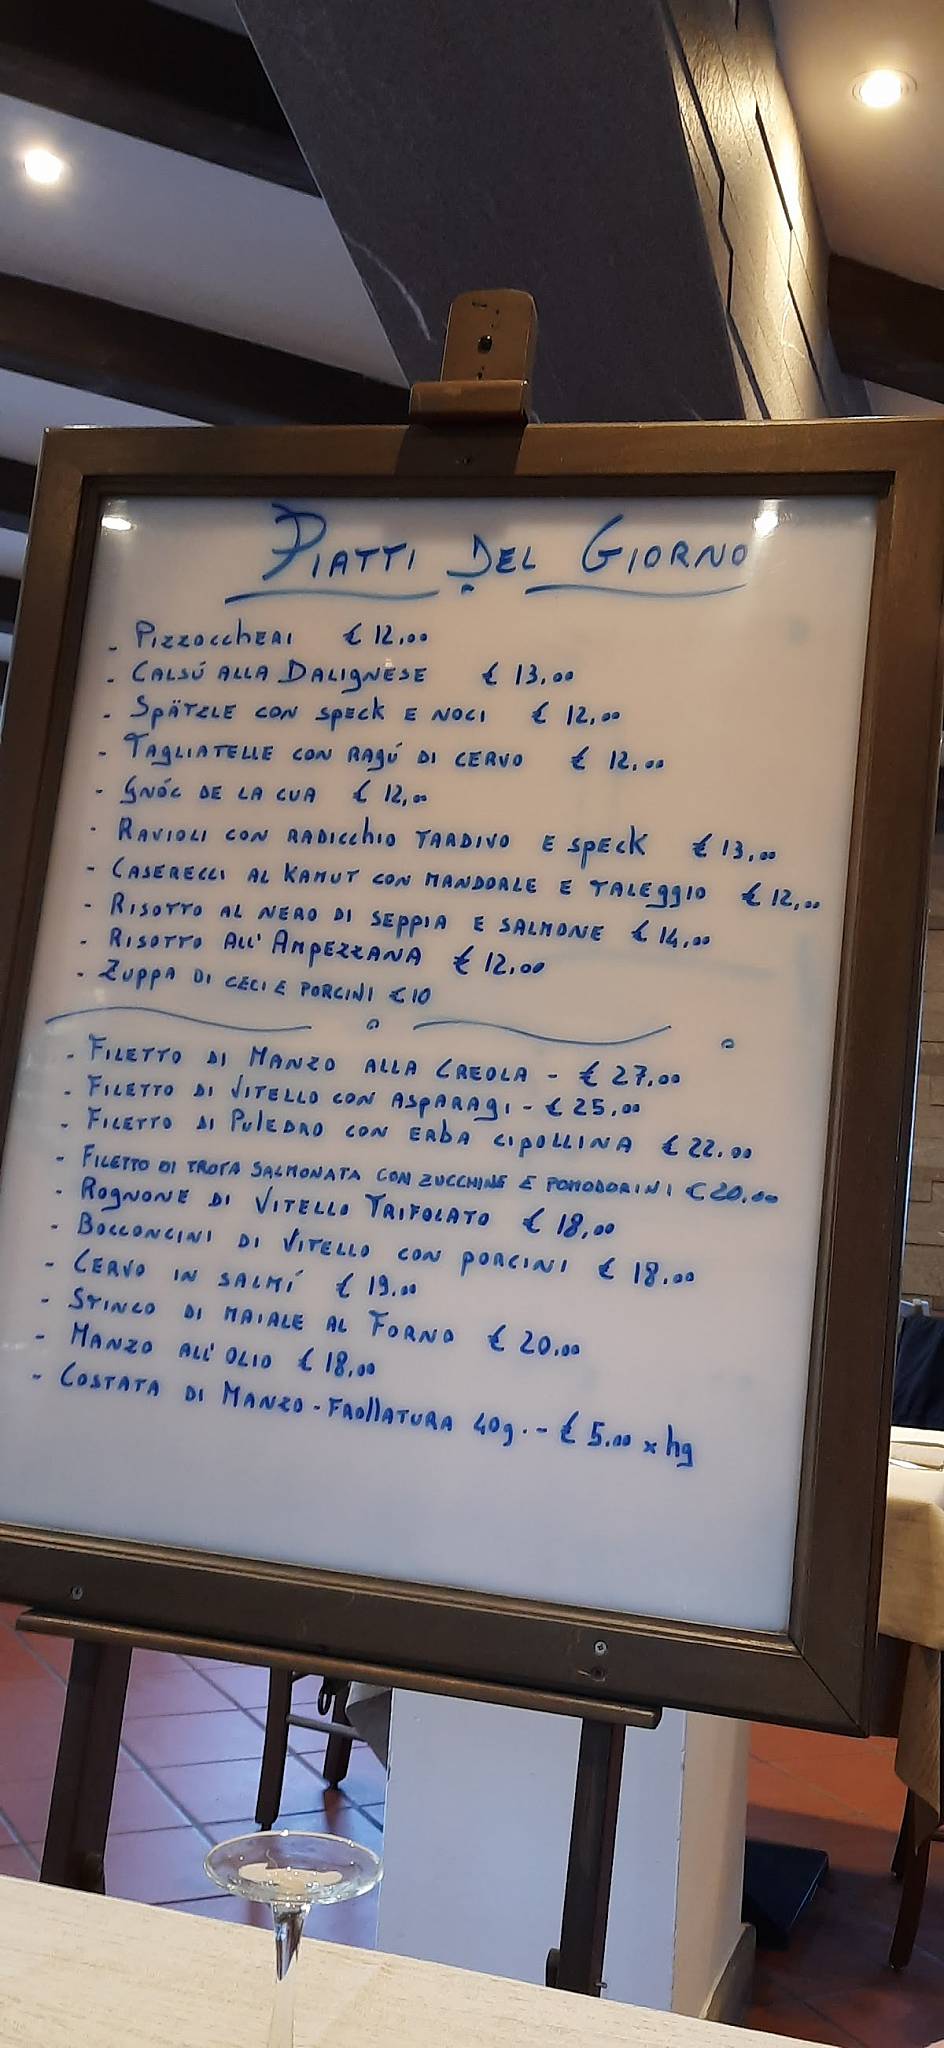 Piatti Del Giorno
- Pizzoccheri € 12,00
- Calsú alla Dalignese € 13,00
- Spätzle con speck e noci € 12,00
- Tagliatelle con ragú di cervo € 12,00
- Gnóc de la cua € 12,00
- Ravioli con radicchio tardivo e speck € 13,00
- Caserecci al kamut con mandorle e taleggio € 12,00
- Risotto al nero di seppia e salmone € 14,00
- Risotto all'Ampezzana € 12,00
- Zuppa di ceci e porcini € 10
- Filetto di Manzo alla Creola - € 27,00
- Filetto di Vitello con asparagi - € 25,00
- Filetto di Puledro con erba cipollina € 22,00
- Filetto di trota salmonata con zucchine e pomodorini € 20,00
- Rognone di Vitello Trifolato € 18,00
- Bocconcini di Vitello con porcini € 18,00
- Cervo in salmí € 19,00
- Stinco di maiale al Forno € 20,00
- Manzo all'olio € 18,00
- Costata di Manzo - Frollatura 40g. - € 5,00 x hg